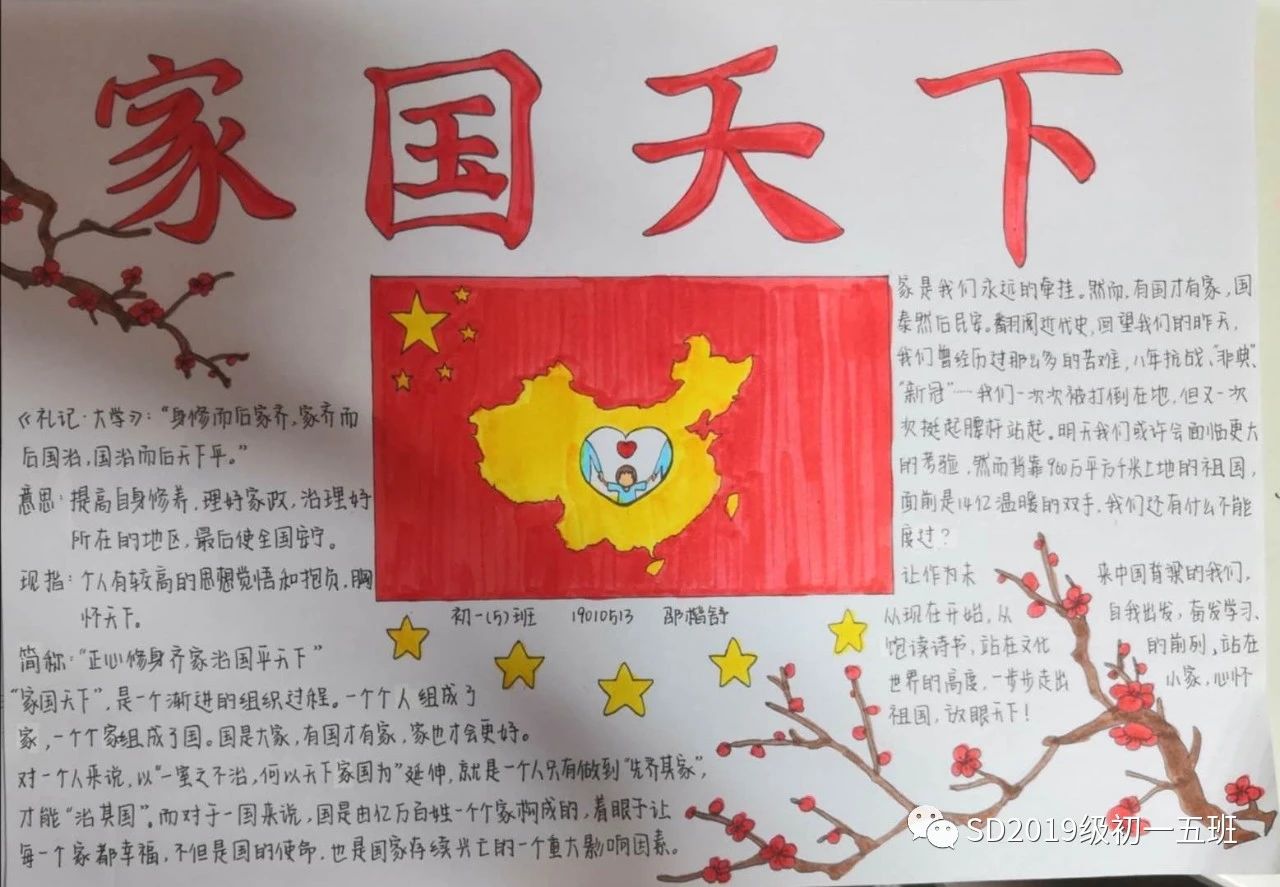 家国天下
《礼记·大学》：“身修而后家齐，家齐而
后国治，国治而后天下平。”
意思：提高自身修养，理好家政，治理好
所在的地区，最后使全国安宁。
现指：个人有较高的思想觉悟和抱负，胸
怀天下。
简称：“正心修身齐家治国平天下”
“家国天下”，是一个渐进的组织过程。一个个人组成了
家，一个个家组成了国。国是大家，有国才有家，家也才会更好。
对一个人来说，以“一室之不治，何以天下家国为”延伸，就是一个人只有做到“先齐其家”，
才能“治其国”。而对于一国来说，国是由亿万百姓一个个家构成的，着眼于让
每一个家都幸福，不但是国的使命，也是国家存续兴亡的一个重大影响因素。
初一(5)班 19010513 邵楷舒
家是我们永远的牵挂。然而，有国才有家，国
泰然后民安。翻阅近代史，回望我们的昨天，
我们曾经历过那么多的苦难，八年抗战、“非典”、
“新冠”……我们一次次被打倒在地，但又一次
次挺起腰杆站起。明天我们或许会面临更大
的考验，然而背靠960万平方千米土地的祖国，
面前是14亿温暖的双手，我们还有什么不能
度过？
让作为未来中国脊梁的我们，
从现在开始，从自我出发，奋发学习、
饱读诗书，站在文化的前列，站在
世界的高度，一步步走出小家，心怀
祖国，放眼天下！
SD2019级初一五班